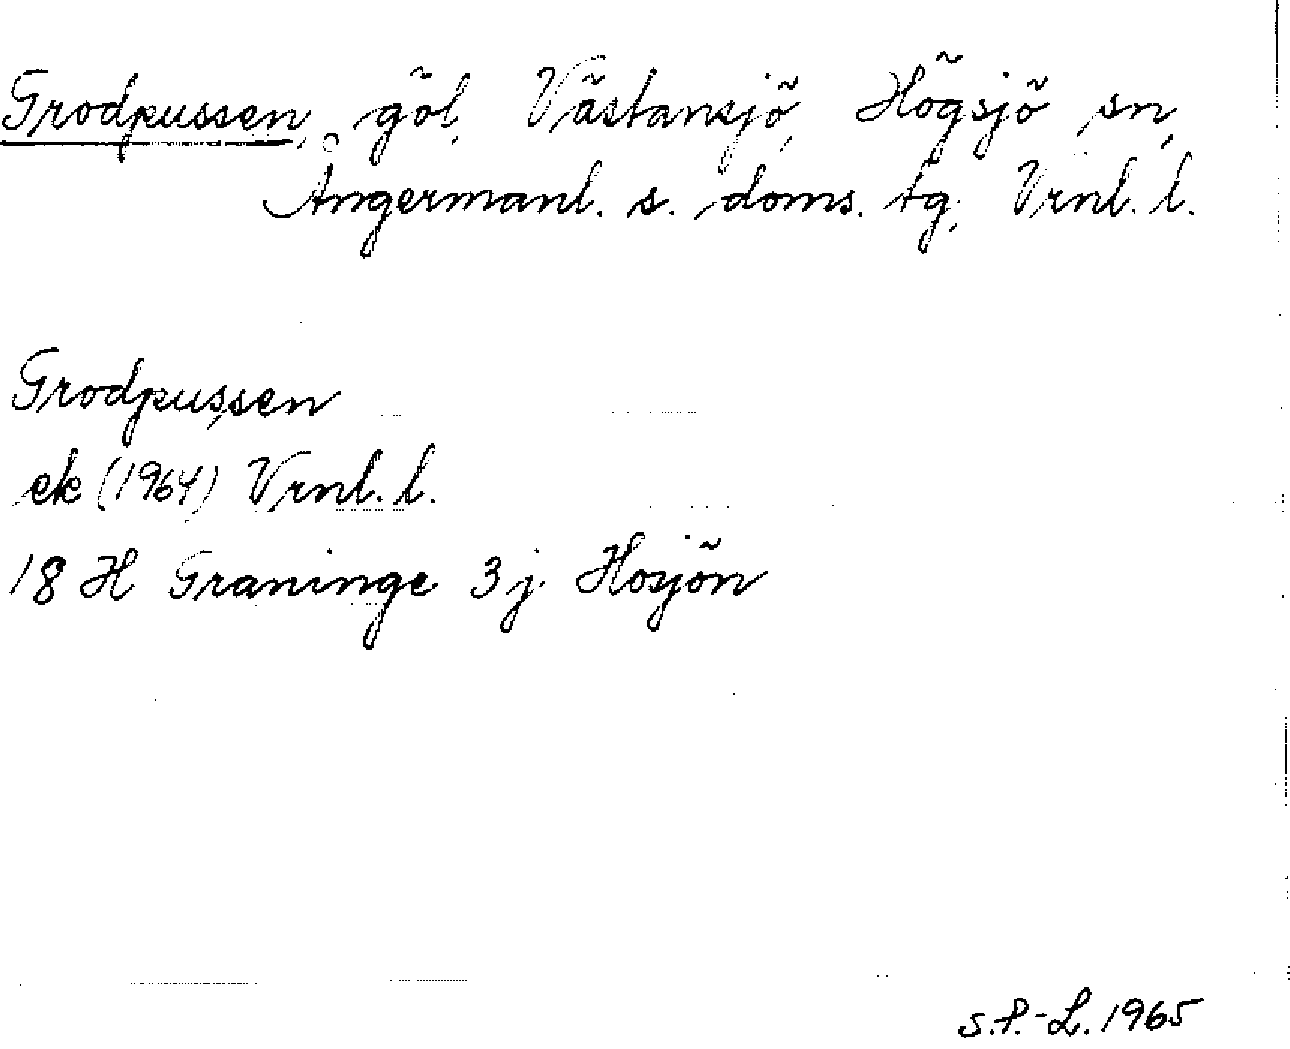 Grodpussen, göl, Västansjö, Högsjö sn,
Ångermanl. s. doms. tg, Vrnl. l.
Grodpussen
ek (1964) Vrnl. l.
18 H Graninge 3 j. Hosjön
S.P.-L. 1965